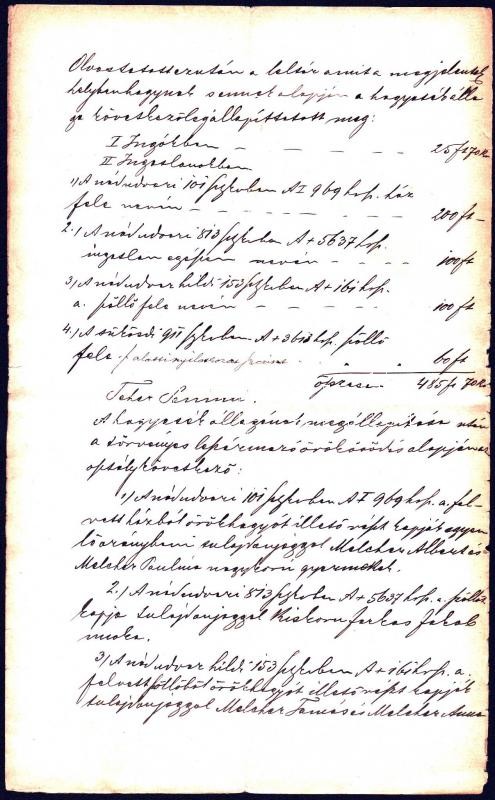 Olvastatott ezután a leltár amit a megjelentek
helybenhagynak ennek alapján a hagyaték álla
ga következőleg állapíttatott meg:
I Ingókban — — — — 25 ft 70 kr
II Ingatlanokban
1) A nádudvari 101 sztkvben A I 969 hrsz. ház
fele részén — — — — — — 200 ft —
2.) A nádudvari 813 sztkvben A + 5637 hrsz.
ingatlan egészen — — — — 100 ft
3) A nádudvar 153 sztkvben A + hrsz.
a. szőllő fele — — — — 100 ft
4.) A sükösdi 911 sztkvben A + 3613 hrsz. szőllő
fele " " 60 ft
összesen 485 ft 70 kr
Teher Semmi.
A hagyaték állagának megállapítása után
a törvényes leszármazó öröklődés alapján az
osztály következő:
1) A nádudvari 101 sztkvben A I 969 hrsz. a. fel-
vett házból örökhagyót illető részt kapják egyen
lő arányban tulajdonjoggal Melcher Albert és
Melcher Paulina nagykorú gyermekek.
2.) A nádudvari 813 sztkvben A + 5637 hrsz. a. szőllőt
kapja tulajdonjoggal Kiskorú Farkas Jakab
unoka.
3) A nádudvar 153 sztkvben A + hrsz. a.
felvett szőllőből örökhagyót illető részt kapják
tulajdonjoggal Melcher Tamás és Melcher Anna